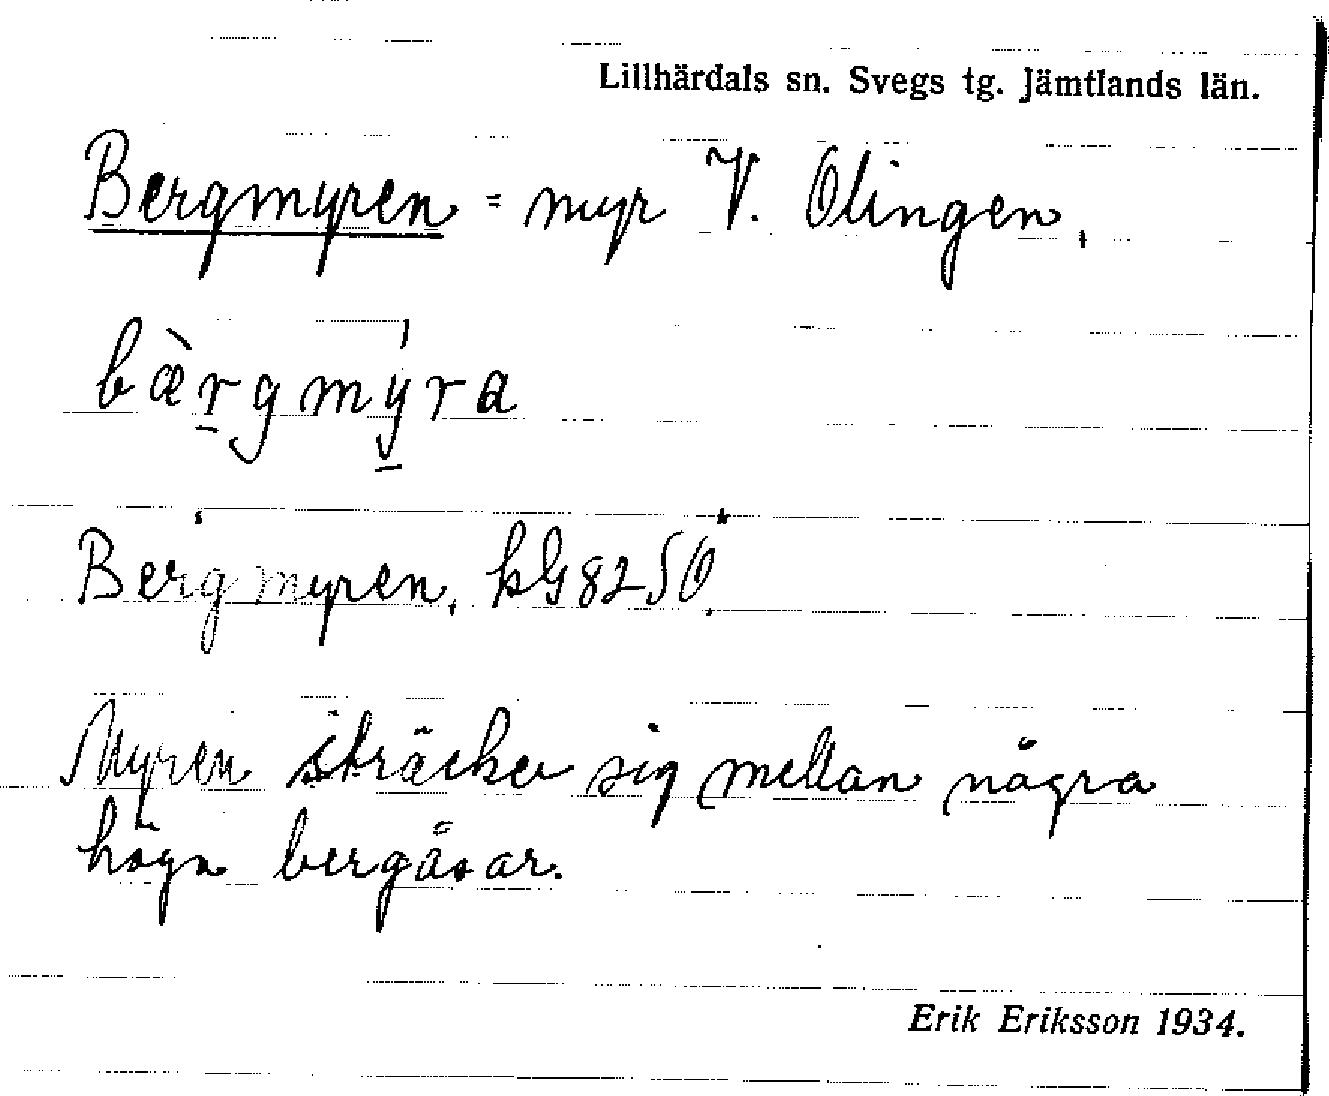 Lillhärdals sn. Svegs tg. Jämtlands län.
Bergmyren = myr V. Olingen.
bæ̀r̠gmý̠ra
Bergmyren, kG 8250.
Myren sträcker sig mellan några
höga bergåsar.
Erik Eriksson 1934.